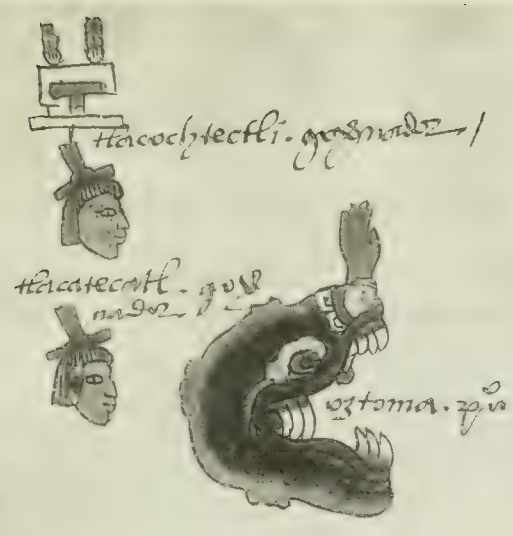 tlacochtectli. gover nador /
tlacatecatl. gover
nador
oztoma. puo